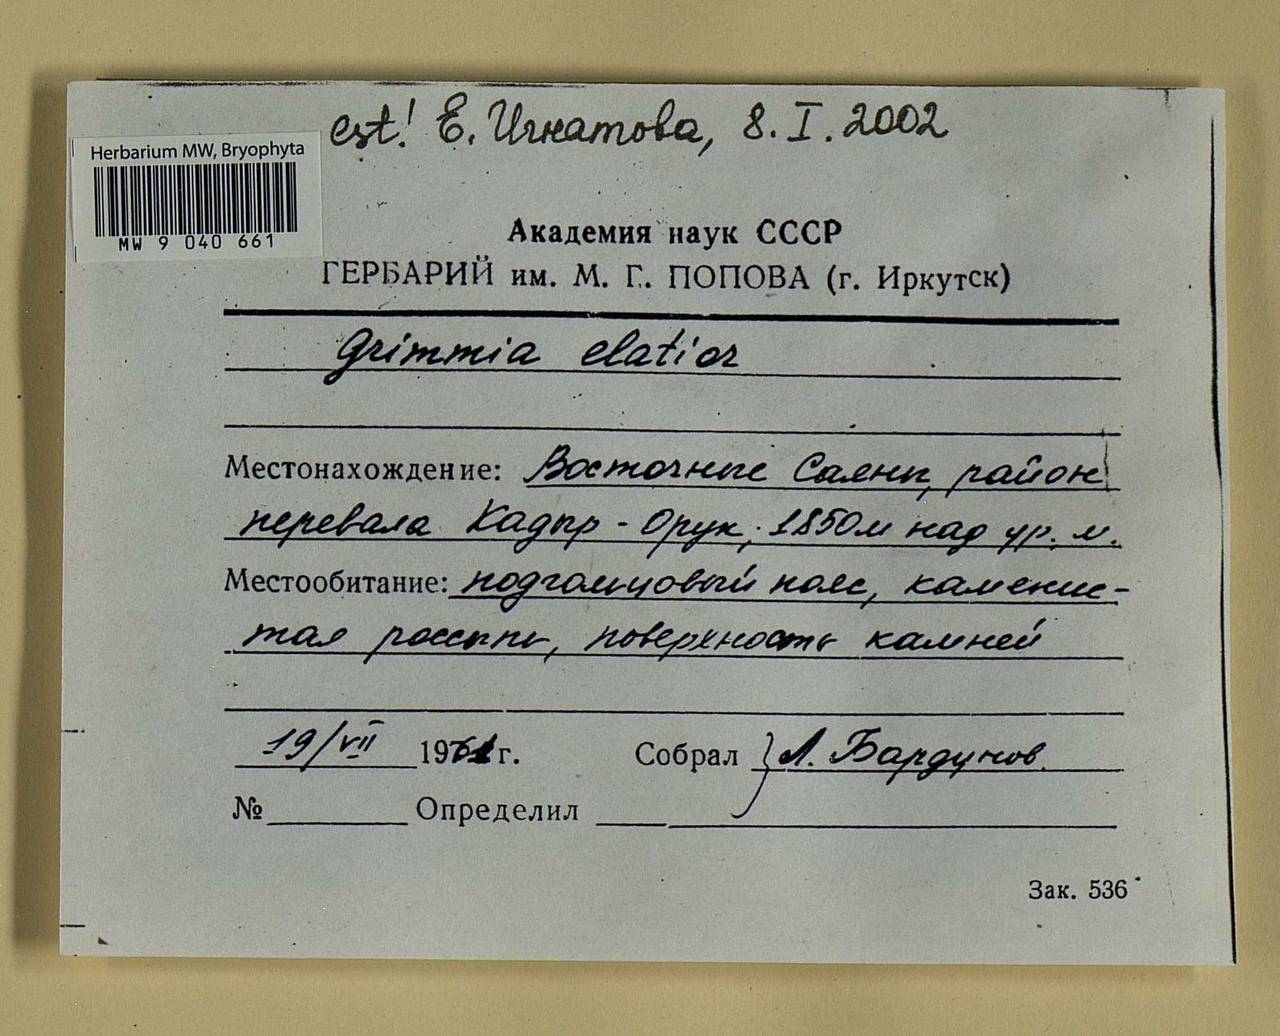 est! Е. Игнатова, 8. I. 2002
Herbarium MW, Bryophyta
MW 9 040 661
Академия наук СССР
ГЕРБАРИЙ им. М. Г. ПОПОВА (г. Иркутск)
Grimmia elatior
Местонахождение: Восточные Саяны, район
перевала Кадыр-Орук, 1850м над ур. м.
Местообитание: подгольцовый пояс, каменис-
тая россыпь, поверхность камней
19/VII 1961 г. Собрал Л. Бардунов.
№ Определил
Зак. 536